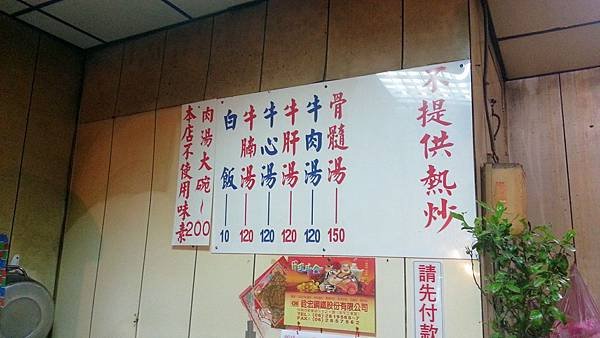 不提供熱炒
骨髓湯—150
牛肉湯—120
牛肝湯—120
牛心湯—120
牛腩湯—120
白飯—10
肉湯大碗~200
本店不使用味素
請先付款
銓宏鋼鐵股份有限公司